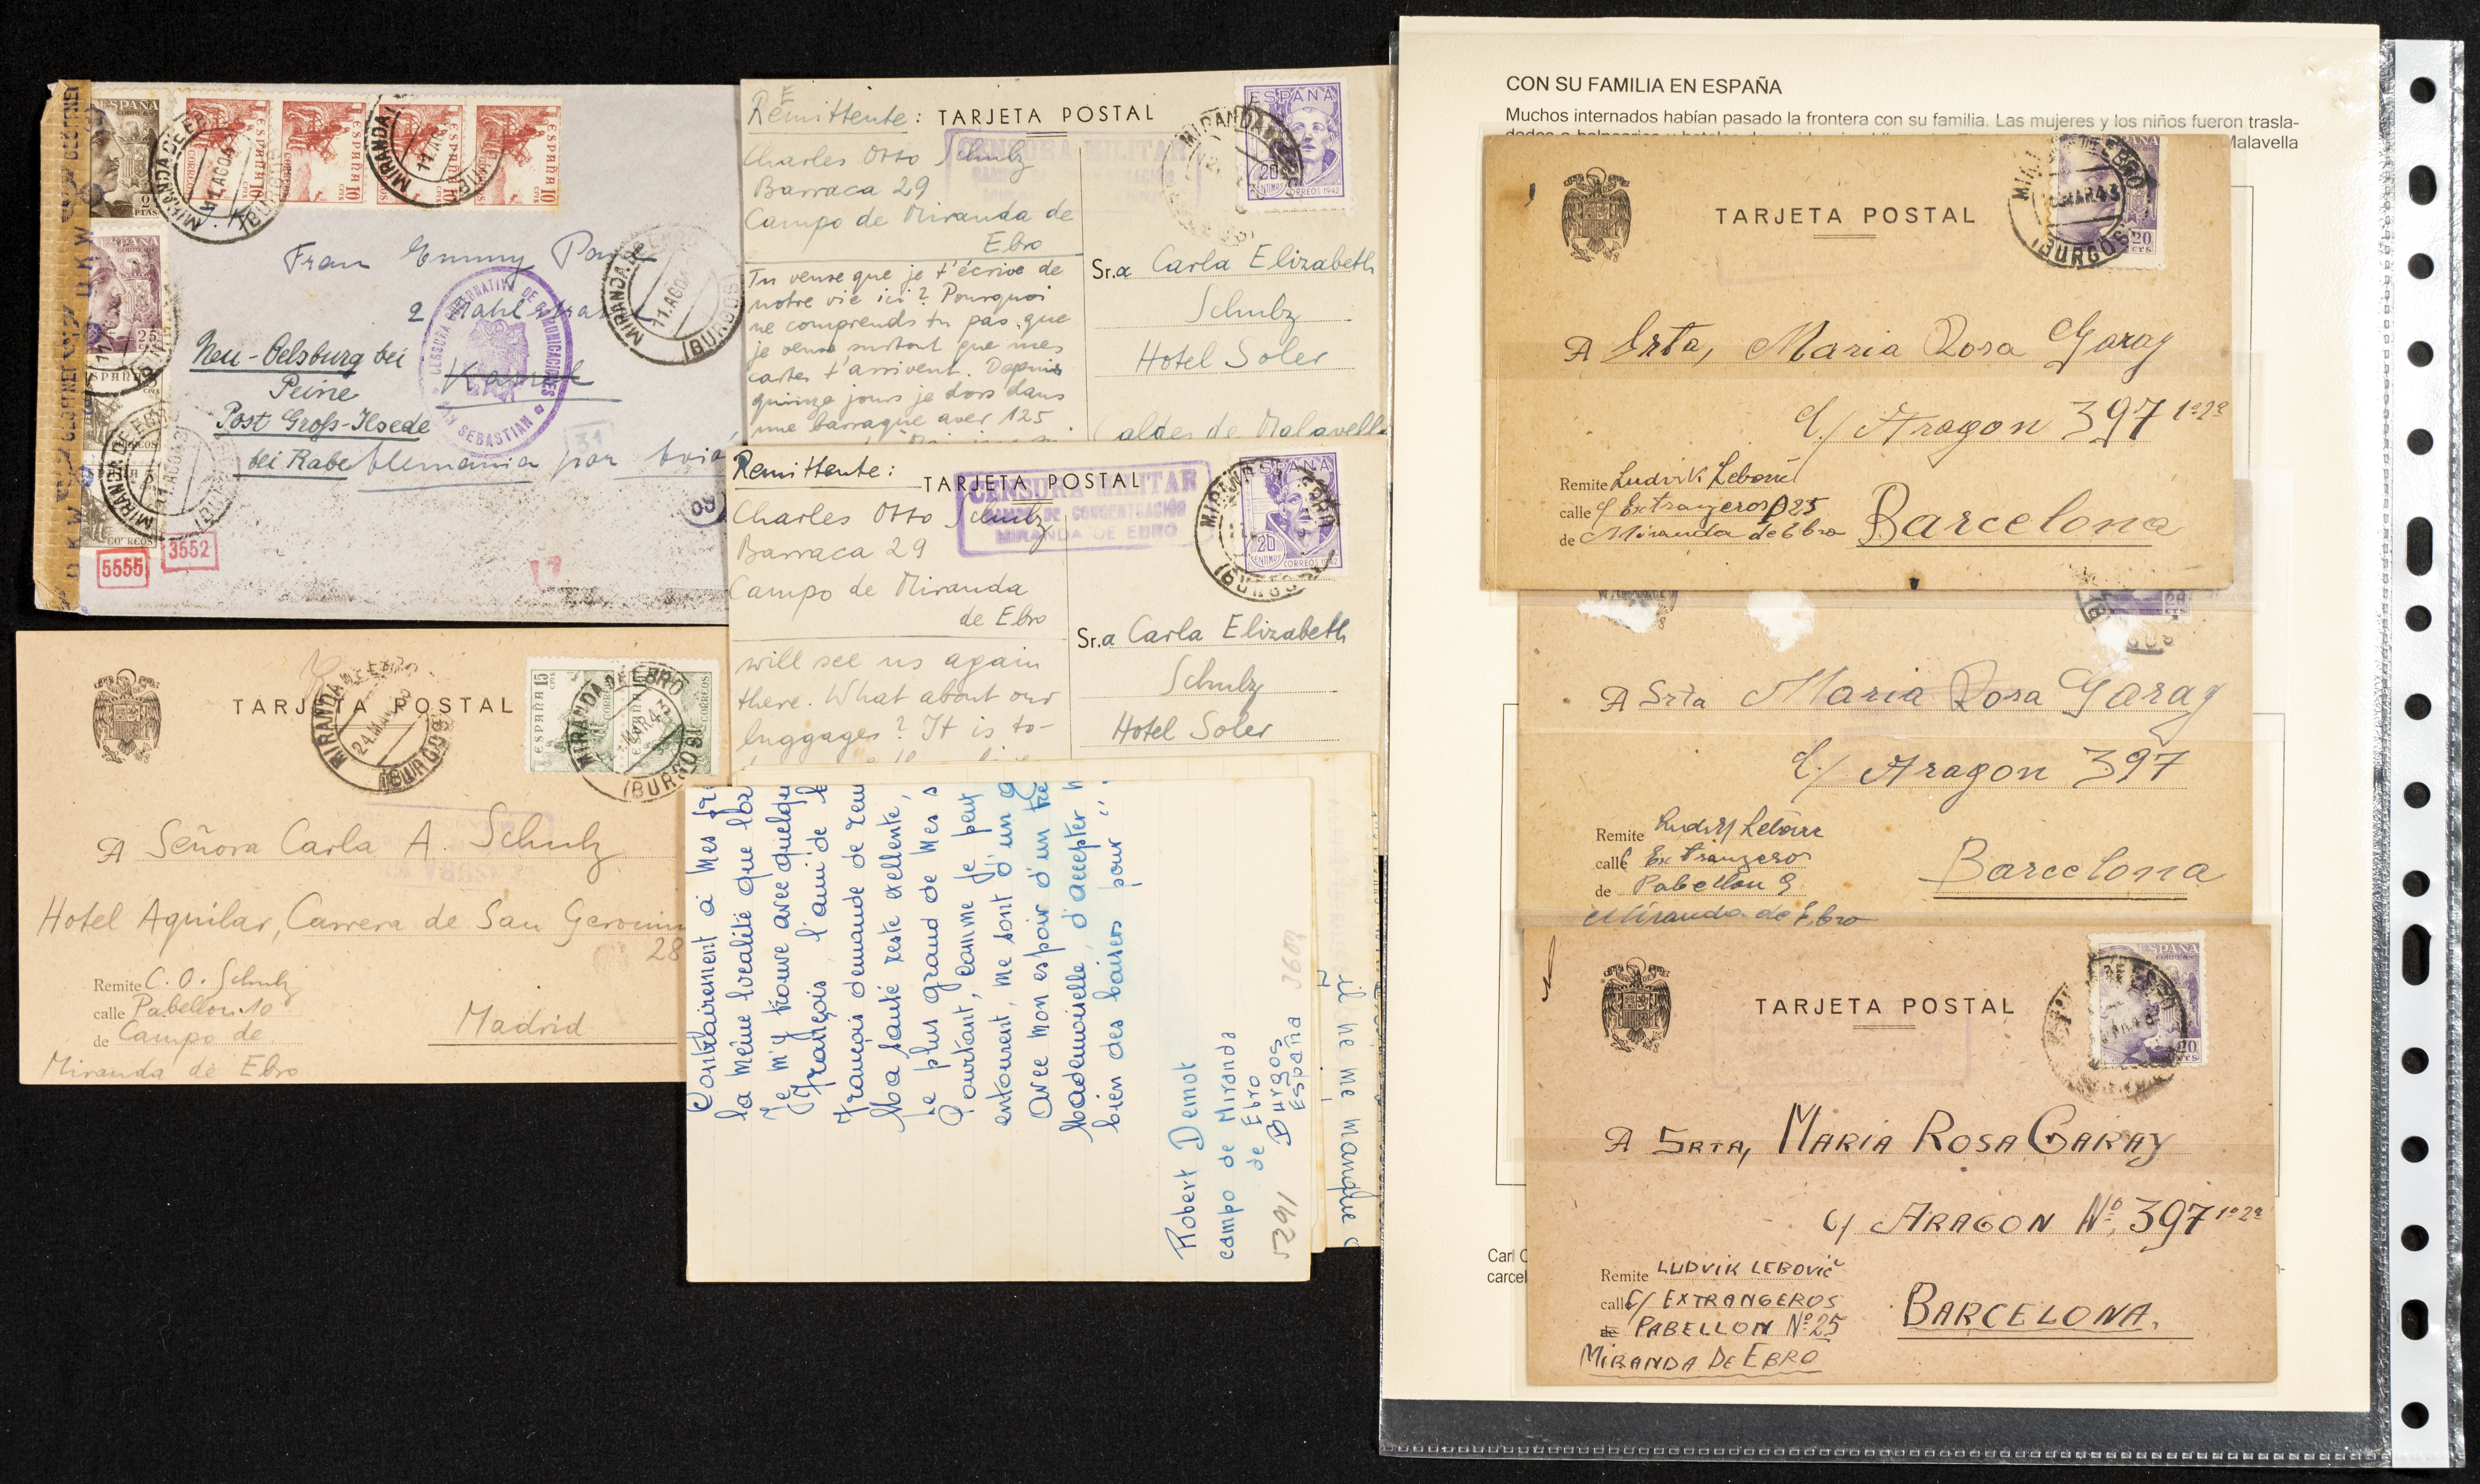 ESPAÑA
CORREOS
2 PTAS
ESPAÑA 10 CTS
ESPAÑA 10 CTS
ESPAÑA 10 CTS
ESPAÑA 10 CTS
MIRANDA DE EBRO
11.AGO
(BURGOS)
Frau Emmy
2
Neu-Oelsburg bei
Peine
Post Groß-Ilsede
bei Rabe
Alemania por avió
CENSURA GUBERNATIVA DE COMUNICACIONES
SAN SEBASTIAN
MIRANDA DE EBRO
11.AGO
(BURGOS)
31
69
5555
3552
TARJETA POSTAL
MIRANDA DE EBRO
24.MAR
(BURGOS)
ESPAÑA 15 CTS
CORREOS
MIRANDA DE EBRO
(BURGOS)
A Señora Carla A. Schulz
Hotel Aguilar, Carrera de San Geronim
28
Remite C. O. Schulz
calle Pabellon 10
de Campo de
Miranda de Ebro
Madrid
Remittente: TARJETA POSTAL
Charles Otto Schulz
Barraca 29
Campo de Miranda de
Ebro
CENSURA MILITAR
ESPAÑA
20 CENTIMOS CORREOS 1942
Tu veux que je t'écrive de
notre vie ici? Pourquoi
ne comprends tu pas que
je veux surtout que mes
cartes t'arrivent. Depuis
quinze jours je dors dans
une barraque avec 125
Sr.a Carla Elizabeth
Schulz
Hotel Soler
Caldes de Malavella
Remittente: TARJETA POSTAL
Charles Otto Schulz
Barraca 29
Campo de Miranda
de Ebro
CENSURA MILITAR
CAMPO DE CONCENTRACIÓN
MIRANDA DE EBRO
ESPAÑA
20 CENTIMOS CORREOS 1942
will see us again
there. What about our
luggages? It is to-
Sr.a Carla Elizabeth
Schulz
Hotel Soler
Contrairement à mes frè
la même localité que
Je m'y trouve avec quelque
François, l'ami de
François demande de
Ma santé reste excellente,
Le plus grand de mes s
Pourtant, comme je peux
entourent, me sont d'un
Avec mon espoir d'un
Mademoiselle, d'accepter
bien des baisers pour
Robert Demot
campo de Miranda
de Ebro
Burgos
España
5291
il ne me manque
CON SU FAMILIA EN ESPAÑA
Muchos internados habían pasado la frontera con su familia. Las mujeres y los niños fueron trasla-
Malavella
TARJETA POSTAL
MAR 43
(BURGOS)
20 CTS
A Srta, Maria Rosa Garay
C/ Aragon 397 1º 2ª
Remite Ludvik Lebovič
calle C/ Extranjeros P 25
de Miranda de Ebro
Barcelona
A Srta Maria Rosa Garay
C/ Aragon 397
Remite
calle C Extranjeros
de Pabellon 9
Miranda de Ebro
Barcelona
TARJETA POSTAL
ESPAÑA
CORREOS
20 CTS
A SRTA, MARIA ROSA GARAY
C/ ARAGON Nº. 397 1º 2ª
Remite LUDVIK LEBOVIČ
calle C/ EXTRANGEROS
de PABELLON Nº 25
MIRANDA DE EBRO
BARCELONA.
Carl
carcel